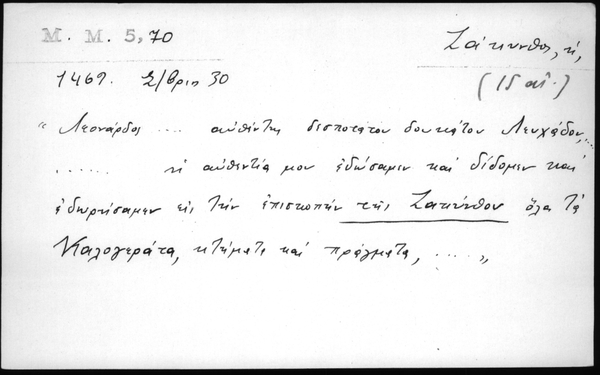 M. M. 5, 70
Ζάκυνθος, ἡ,
1469. Σ/βριῳ 30
(15 αἰ.)
"Λεονάρδος .... αὐθέντης δεσποτάτου δουκάτου Λευκάδου, ...
...... ἡ αὐθεντία μου ἐδώσαμεν καὶ δίδομεν καὶ
ἐδωρήσαμεν εἰς τὴν ἐπισκοπὴν τῆς Ζακύνθου ὅλα τὰ
Καλογεράτα, κτήματα καὶ πράγματα, ....."